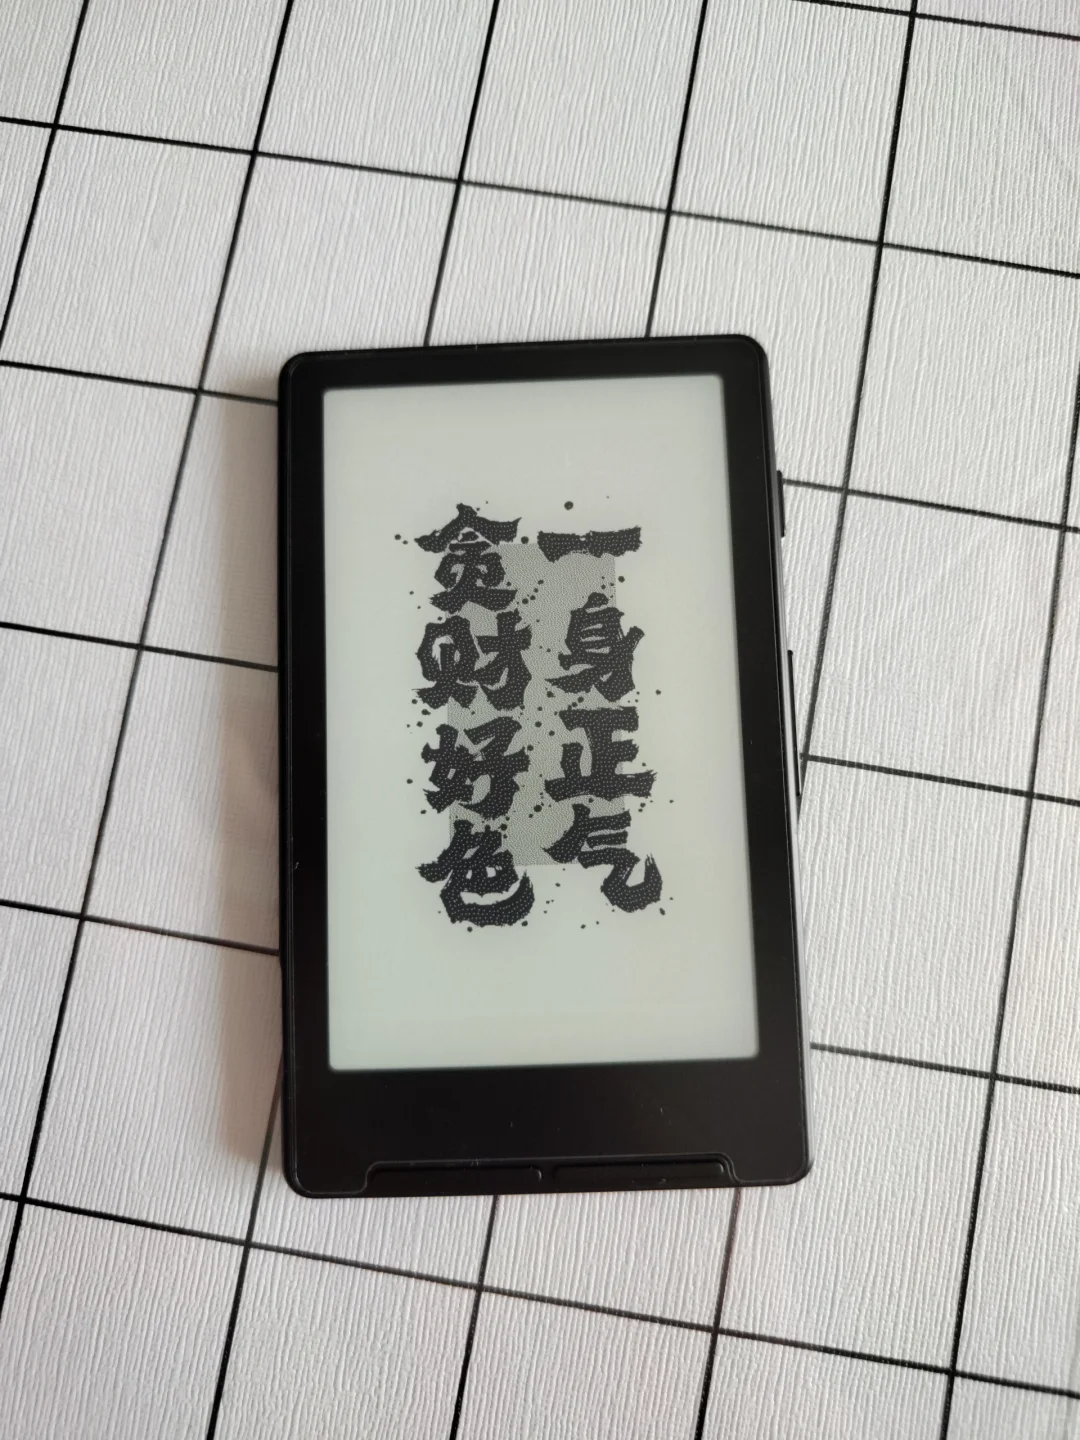 一身正气
贪财好色